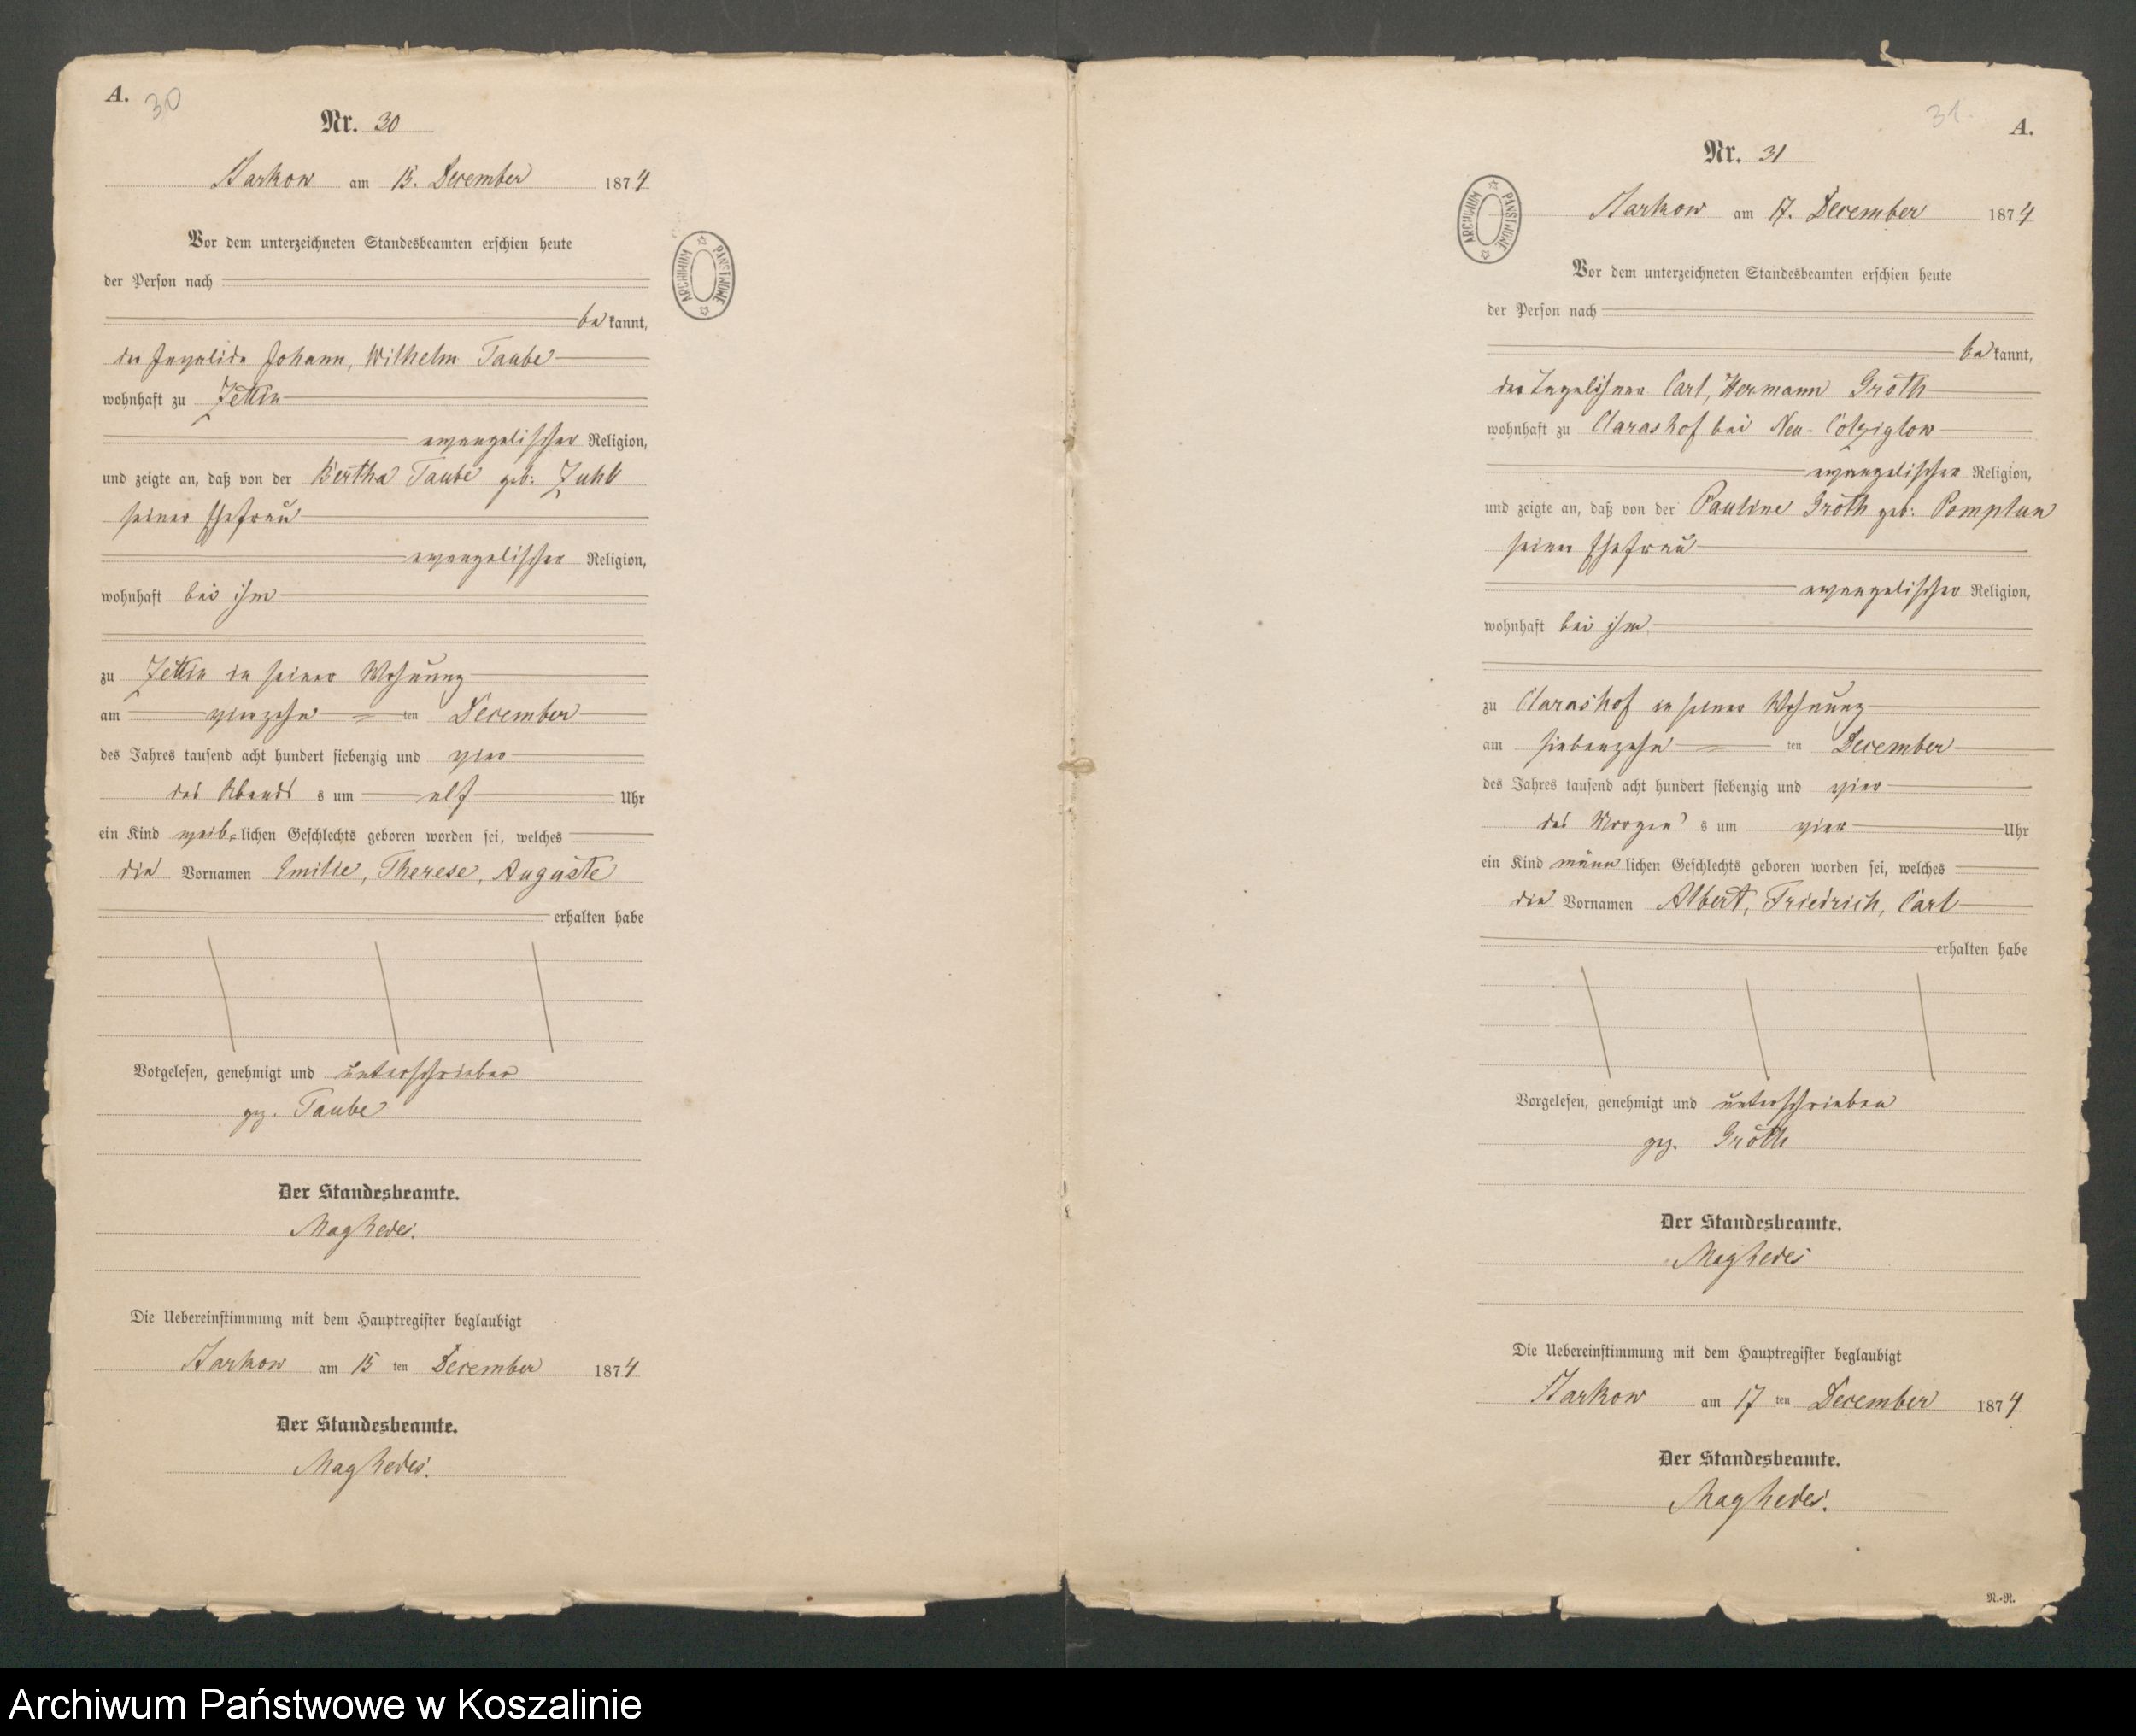 A.
30
Nr. 30
Starkow am 15. December 1874
Vor dem unterzeichneten Standesbeamten erschien heute
der Person nach
bekannt,
der Invalide Johann, Wilhelm Taube
wohnhaft zu Zettin
evangelischer Religion,
und zeigte an, daß von der Bertha Taube geb: Zuhl
seiner Ehefrau
evangelischer Religion,
wohnhaft bei ihm
zu Zettin in seiner Wohnung
am vierzehn ten December
des Jahres tausend acht hundert siebenzig und vier
des Abends s um elf Uhr
ein Kind weiblichen Geschlechts geboren worden sei, welches
die Vornamen Emilie, Therese, Auguste
erhalten habe
Vorgelesen, genehmigt und unterschrieben
gez. Taube
Der Standesbeamte.
Die Uebereinstimmung mit dem Hauptregister beglaubigt
Starkow am 15 ten December 1874
Der Standesbeamte.
ARCHIWUM PAŃSTWOWE
31
A.
Nr. 31
Starkow am 17. December 1874
ARCHIWUM PAŃSTWOWE
Vor dem unterzeichneten Standesbeamten erschien heute
der Person nach
bekannt,
der Tagelöhner Carl, Hermann Groth
wohnhaft zu Clarashof bei Neu-Colziglow
evangelischer Religion,
und zeigte an, daß von der Pauline Groth geb: Pomplun
seiner Ehefrau
evangelischer Religion,
wohnhaft bei ihm
zu Clarashof in seiner Wohnung
am siebenzehn ten December
des Jahres tausend acht hundert siebenzig und vier
des Morgen s um vier Uhr
ein Kind männlichen Geschlechts geboren worden sei, welches
die Vornamen Albert, Friedrich, Carl
erhalten habe
Vorgelesen, genehmigt und unterschrieben
gez. Groth
Der Standesbeamte.
Die Uebereinstimmung mit dem Hauptregister beglaubigt
Starkow am 17 ten December 1874
Der Standesbeamte.
R.-R.
Archiwum Państwowe w Koszalinie